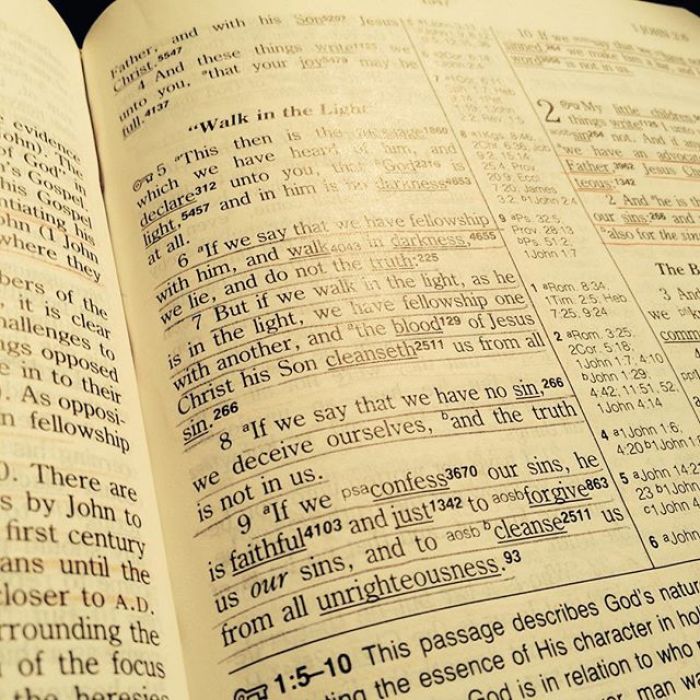 evidence
John). The
of God" in
's Gospel.
his Gospel
ntiating his
ohn (1 John
where they
bers of the
, it is clear
hallenges to
ngs opposed
e in to their
). As opposi-
n fellowship
0. There are
s by John to
first century
ans until the
closer to A.D.
rrounding the
of the focus
the heresies
Father, and with his Son5207 Jesus
Christ.5547
4 And these things write1125 we
unto you, athat your joy5479 may be
full.4137
"Walk in the Light
5 aThis then is the message1860
which we have heard of him, and
declare312 unto you, that God2316 is
light,5457 and in him is no darkness4653
at all.
6 aIf we say that we have fellowship
with him, and walk4043 in darkness,4655
we lie, and do not the truth:225
7 But if we walk in the light, as he
is in the light, we have fellowship one
with another, and athe blood129 of Jesus
Christ his Son cleanseth2511 us from all
sin.266
8 aIf we say that we have no sin,266
we deceive ourselves, band the truth
is not in us.
9 aIf we psaconfess3670 our sins, he
is faithful4103 and just1342 to aosbforgive863
us our sins, and to aosb bcleanse2511 us
from all unrighteousness.93
1:5–10 This passage describes God's natur
ting the essence of His character in hol
God is in relation to who
9 aPs. 32:5,
Prov. 28:13
bPs. 51:2,
1John 1:7
1 aRom. 8:34,
1Tim. 2:5, Heb
7:25, 9:24
2 aRom. 3:25,
2Cor. 5:18,
1John 1:7, 4:10
bJohn 1:29;
4:42, 11:51,52,
1John 4:14
4 a1John 1:6,
4:20 b1John
5 aJohn 14:2
23 b1John
c1John
6 aJohn
1 JOHN 2:6
10 If we say that we
sinned
word is not in us.
2 My little children
things write
sin264 not. And if
awe have an advoca
Father,3962 Jesus Ch
teous:1342
2 And ahe is th
our sins:266 and
balso for the sin
The B
3 And
we
comm